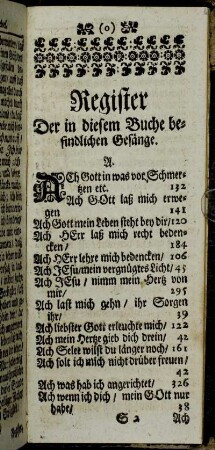 (0)
Register
Der in diesem Buche be-
findlichen Gesänge.
A.
ACh Gott in was vor Schmer-
tzen etc. 132
Ach GOtt laß mich erwe-
gen 141
Ach Gott mein Leben steht bey dir/ 120
Ach HErr laß mich recht beden-
cken/ 184
Ach HErr lehre mich bedencken/ 106
Ach JEsu/ mein vergnügtes Licht/ 45
Ach JEsu / nimm mein Hertz von
mir/ 295
Ach last mich gehn / ihr Sorgen
ihr/ 39
Ach liebster Gott erleuchte mich/ 122
Ach mein Hertze gieb dich drein/ 42
Ach Seele wilst du länger noch/ 161
Ach solt ich mich nicht drüber freuen/
42
Ach was hab ich angerichtet/ 326
Ach wenn ich dich / mein GOtt nur
habe/ 38
S 2 Ach